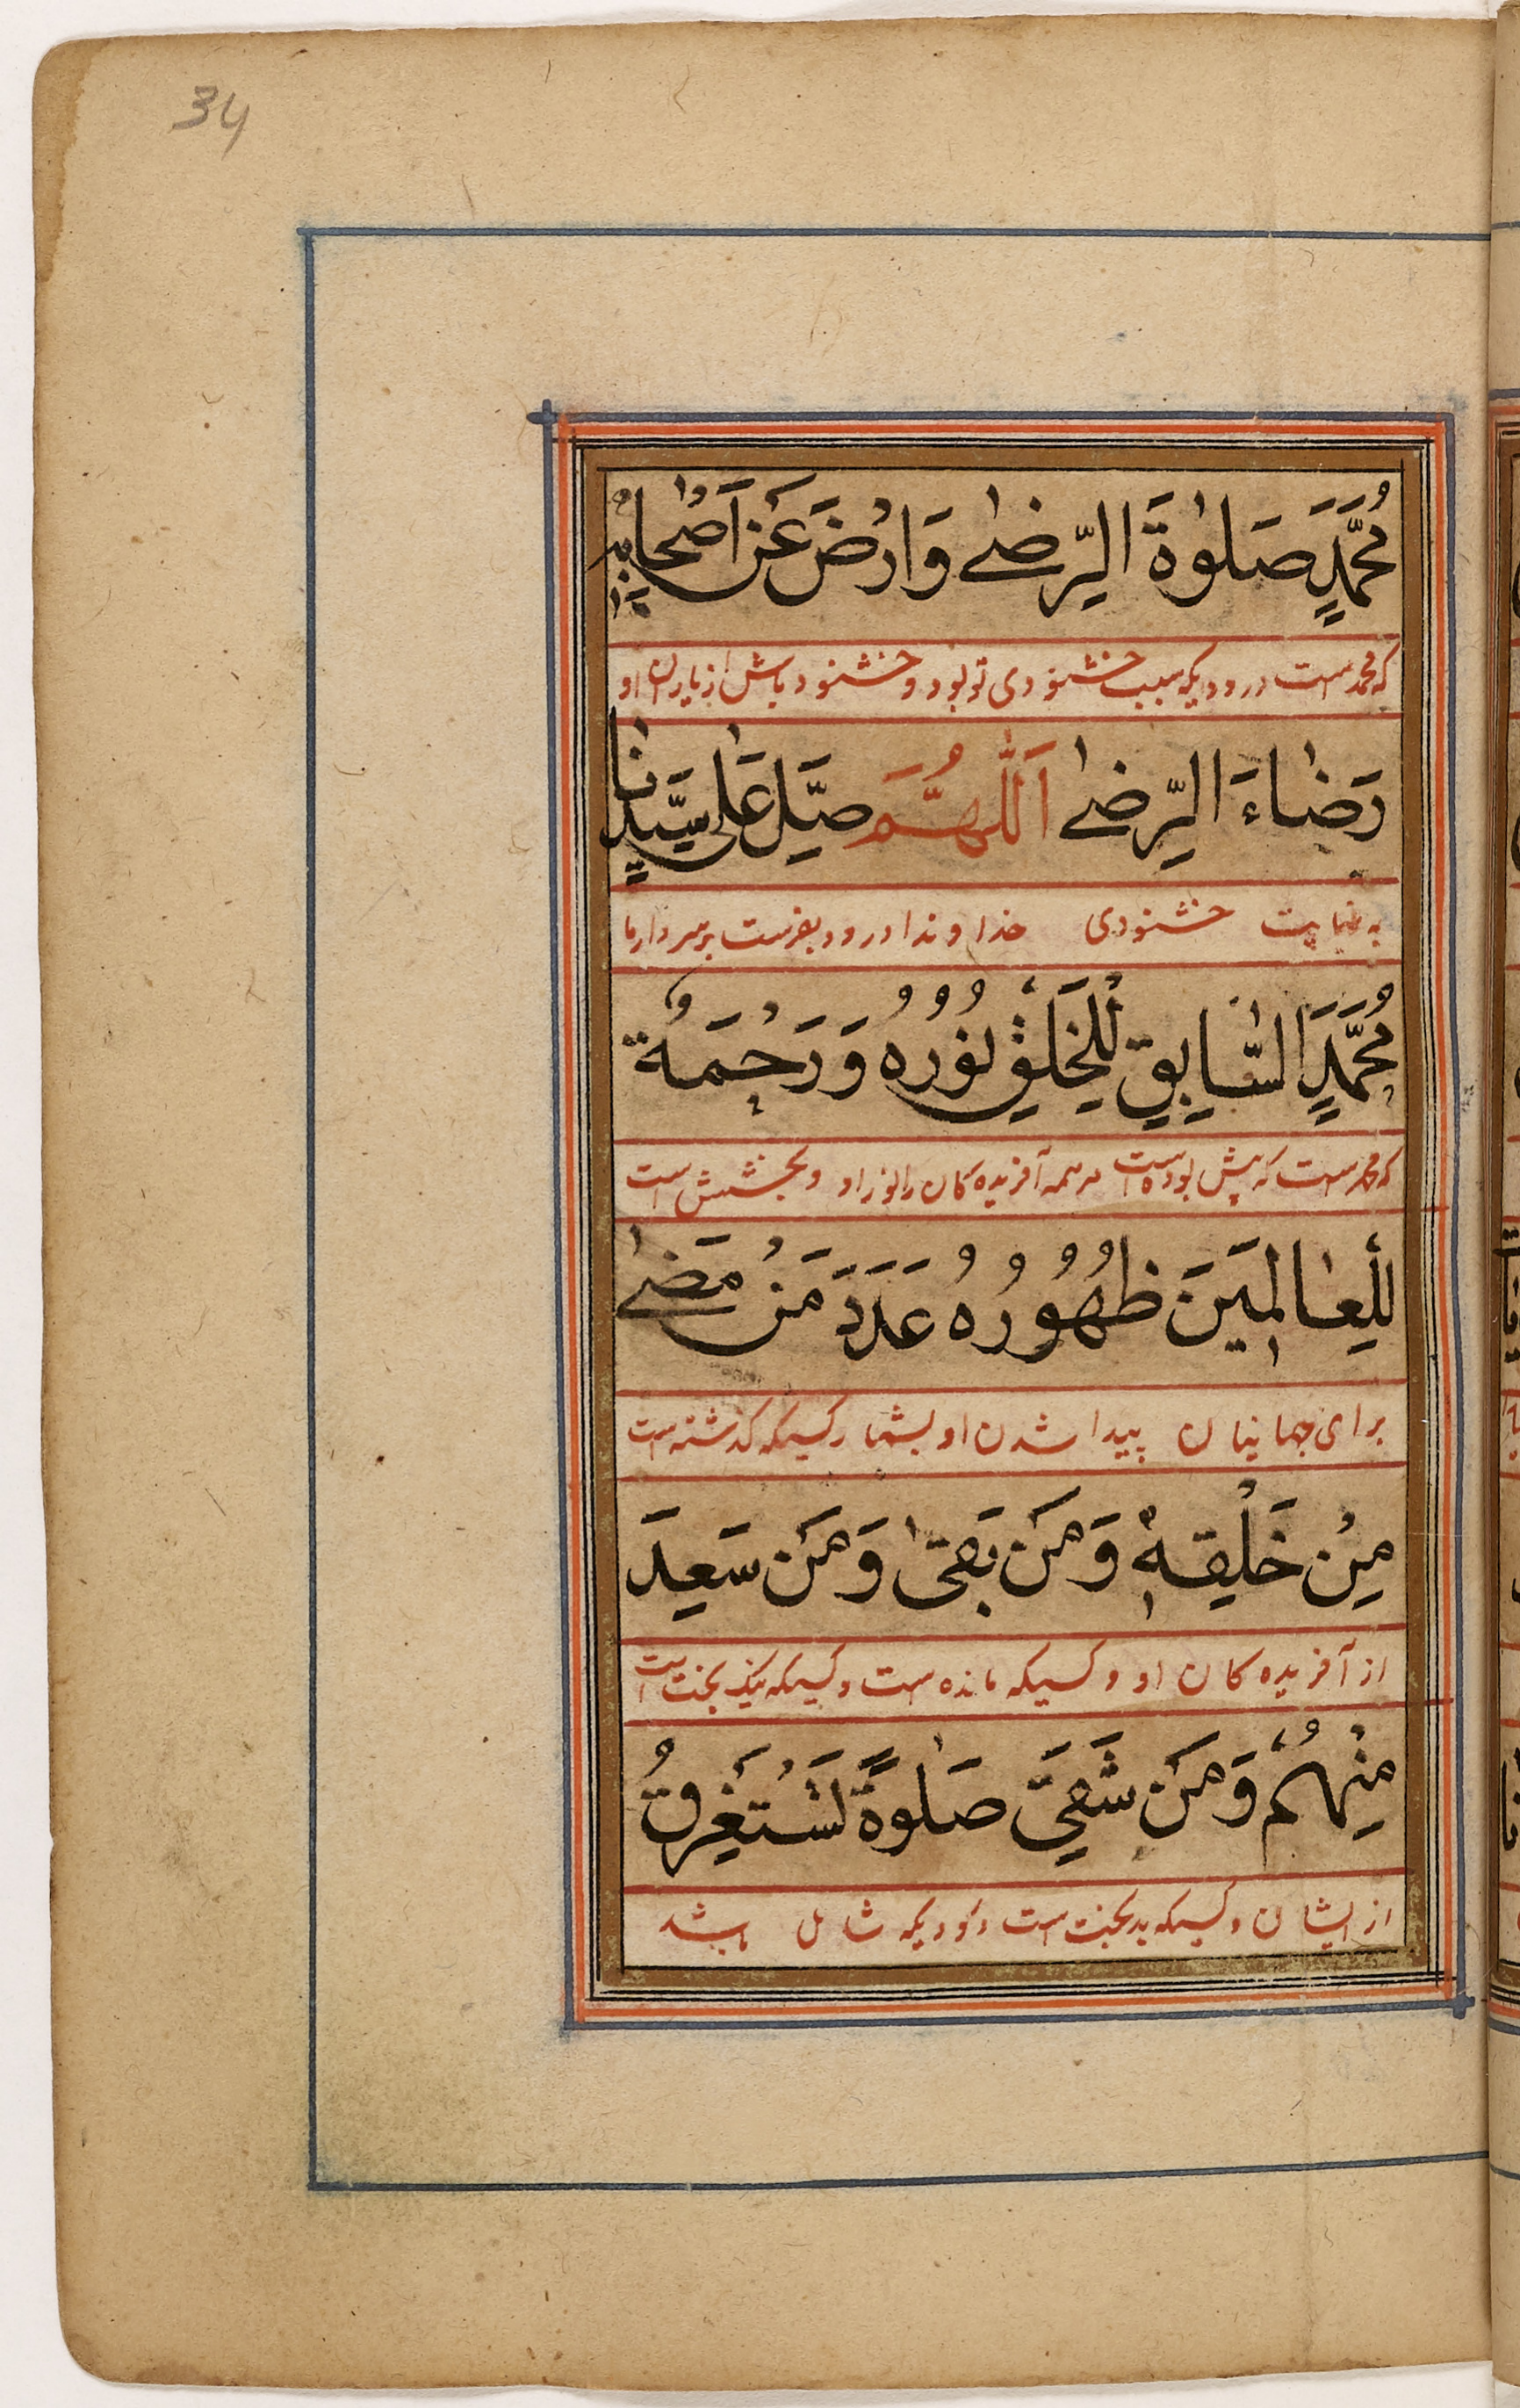 34
مُحَمَّدٍ صَلٰوةَ الرِّضٰے وَارْضَ عَنْ اَصْحَابِهٖ
که محمد است درودیکه سبب خشنودی تو بود و خشنود باش از یاران او
رَضَاءَ الرِّضٰے اَللّٰهُمَّ صَلِّ عَلٰی سَیِّدِنَا
به نهایت خشنودی خداوندا درود بفرست بر سردار ما
مُحَمَّدٍ السَّابِقِ لِلْخَلْقِ نُوْرُهُ وَرَحْمَةٌ
که محمد است که پیش بوده است مر همه آفریده کان را نور او و بخشش است
لِلْعَالَمِیْنَ ظُهُوْرُهُ عَدَدَ مَنْ مَضٰے
برای جهانیان پیدا شدن او بشمار کسیکه گذشته است
مِنْ خَلْقِهٖ وَمَنْ بَقٰی وَمَنْ سَعِدَ
از آفریده کان او و کسیکه مانده است و کسیکه نیک بخت است
مِنْهُمْ وَمَنْ شَقِیَ صَلٰوةً تَسْتَغْرِقُ
از ایشان و کسیکه بدبخت است درودیکه شامل باشد